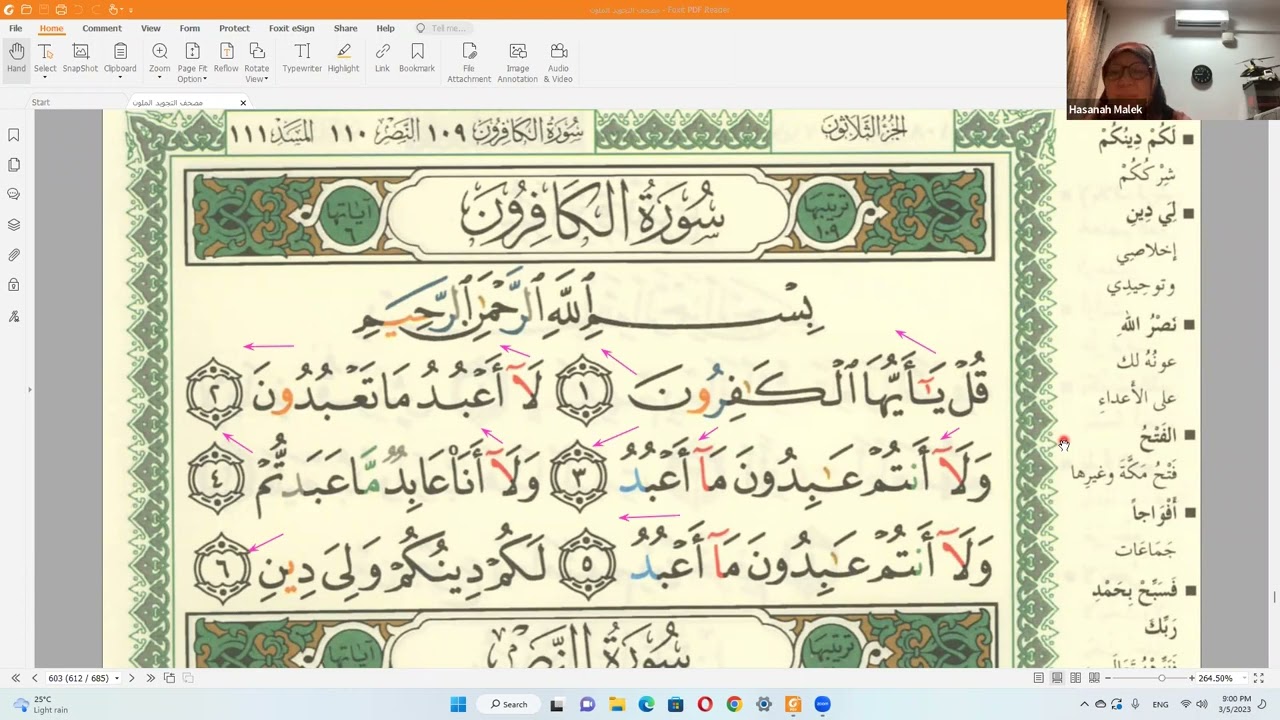 مصحف التجويد الملون - Foxit PDF Reader
File Home Comment View Form Protect Foxit eSign Share Help Tell me...
Hand Select SnapShot Clipboard Zoom Page Fit Option Reflow Rotate View Typewriter Highlight Link Bookmark File Attachment Image Annotation Audio & Video
Hasanah Malek
Start مصحف التجويد الملون
الجزء الثلاثون سُورَةُ الكَافِرُونَ ١٠٩ النَّصْر ١١٠ المَسَد ١١١
ترتيبها ١٠٩ سُورَةُ الكَافِرُونَ آياتها ٦
بِسْمِ ٱللَّهِ ٱلرَّحْمَٰنِ ٱلرَّحِيمِ
قُلْ يَـٰٓأَيُّهَا ٱلْكَـٰفِرُونَ ١ لَآ أَعْبُدُ مَا تَعْبُدُونَ ٢
وَلَآ أَنتُمْ عَـٰبِدُونَ مَآ أَعْبُدُ ٣ وَلَآ أَنَا۠ عَابِدٌ مَّا عَبَدتُّمْ ٤
وَلَآ أَنتُمْ عَـٰبِدُونَ مَآ أَعْبُدُ ٥ لَكُمْ دِينُكُمْ وَلِىَ دِينِ ٦
ترتيبها سُورَةُ النَّصْر آياتها
لَكُمْ دِينُكُمْ
شِرْكُكُمْ
لِيَ دِينِ
إخلاصِي
وتوحِيدِي
نَصْرُ اللهِ
عونُهُ لك
على الأَعداءِ
الفَتْحُ
فَتْحُ مَكَّةَ وغيرِها
أَفْوَاجاً
جَمَاعَات
فَسَبِّحْ بِحَمْدِ
رَبِّكَ
603 (612 / 685) 264.50%
25°C
Light rain
Search
ENG
9:00 PM
3/5/2023